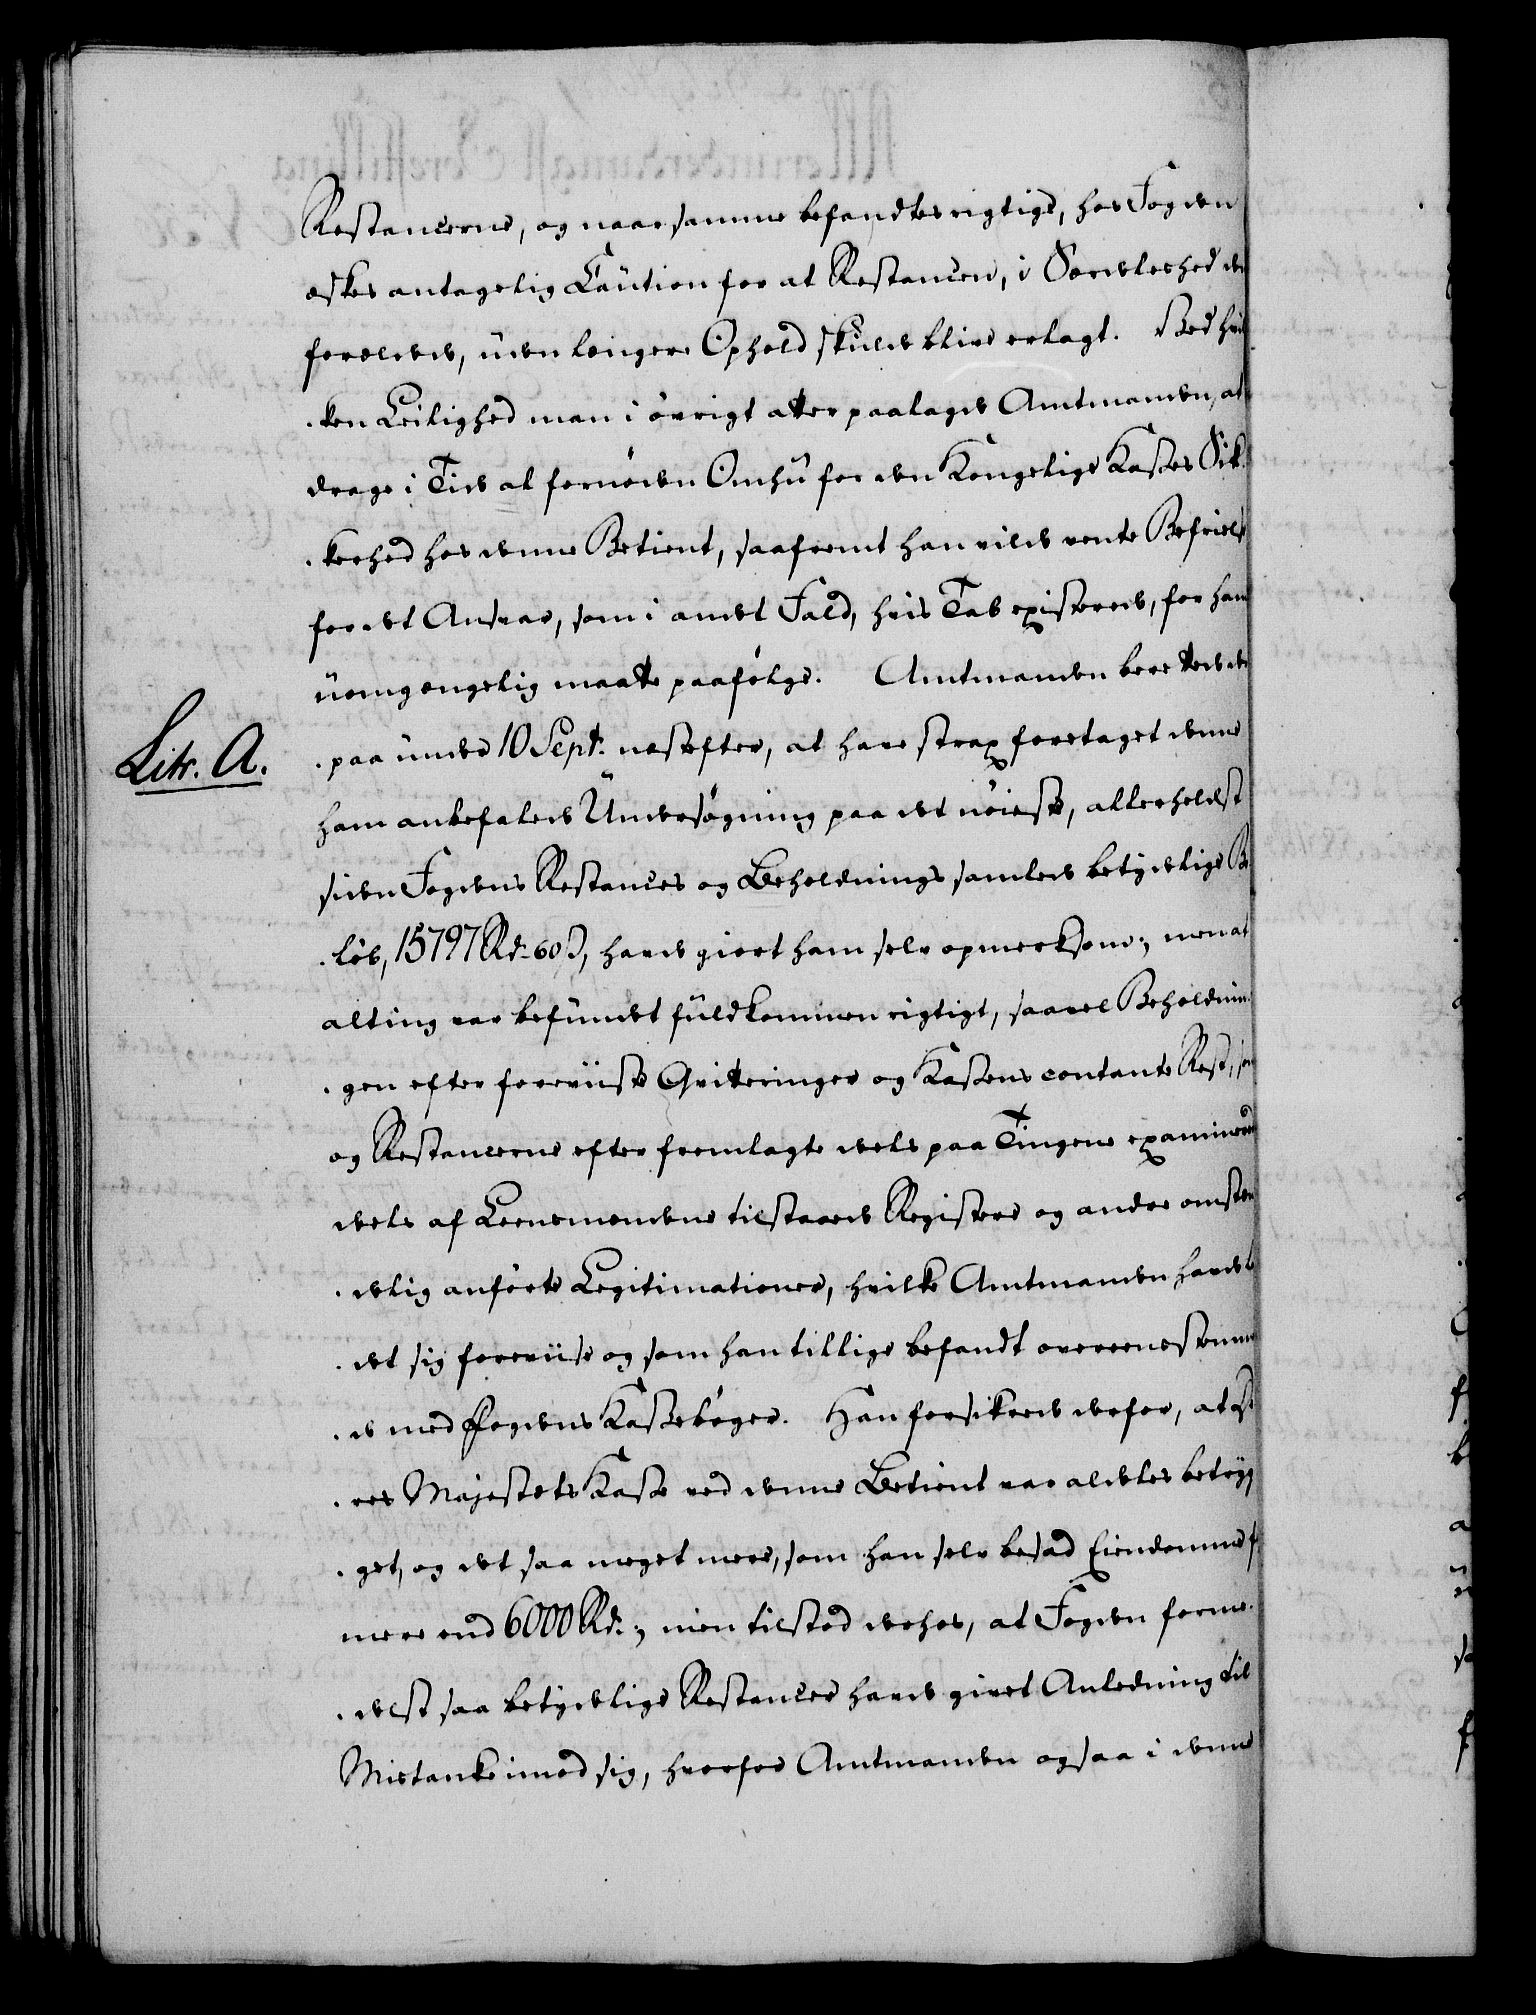 Restancerne, og naar samme befandtes rigtige, hos Fogden
æskes antagelig Caution for at Restancen, i Særdeleshed den
forældede, uden længere Ophold skulde blive erlagt. Ved hvil
-ken Leilighed man i øvrigt atter paalagde Amtmanden, at
drage i Tide al fornøden Omhu for den Kongelige Kasses Sik-
-kerhed hos denne Betient, saafremt han vilde vente Befrielse
for det Ansvar, som i andet Fald, hvis Tab existerede, for ham
uomgængelig maatte paafølge. Amtmanden berettede der
-paa under 10 Sept. næstefter, at have strax foretaget denne
Litr. A.
ham anbefalede Undersøgning paa det nøieste, allerhelst
siden Fogdens Restancer og Beholdnings samlede betydelige Be
-løb, 15797 Rd. 60 ß, havde giort ham selv opmerksom; men at
alting var befundet fuldkommen rigtigt, saavel Beholdnin-
-gen efter foreviiste Qvitteringer og Kassens contante Rest, som
og Restancerne efter fremlagte deels paa Tingene examinerede
deels af Leensmændene tilstaaede Registere og andre omstæn
-delig anførte Legitimationer, hvilke Amtmanden havde la
-det sig foreviise og som han tillige befandt overeenstemmen
-de med Fogdens Kassebøger. Han forsikrede derfor, at De
-res Majestæts Kasse ved denne Betient var aldeles betryg
-get, og det saa meget mere, som han selv besad Eiendomme for
mere end 6000 Rd.; men tilstod derhos, at Fogden forme-
-delst saa betydelige Restancer havde givet Anledning til
Mistanke imod sig, hvorfor Amtmanden ogsaa i denne